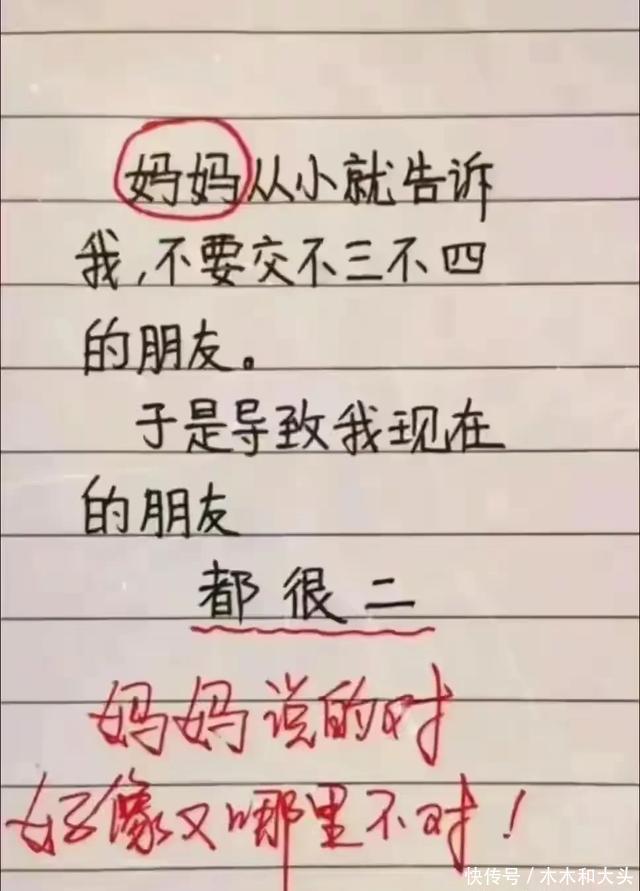 妈妈从小就告诉
我,不要交不三不四
的朋友。
于是导致我现在
的朋友
都很二
妈妈说的对
好像又哪里不对!
快传号/木木和大头